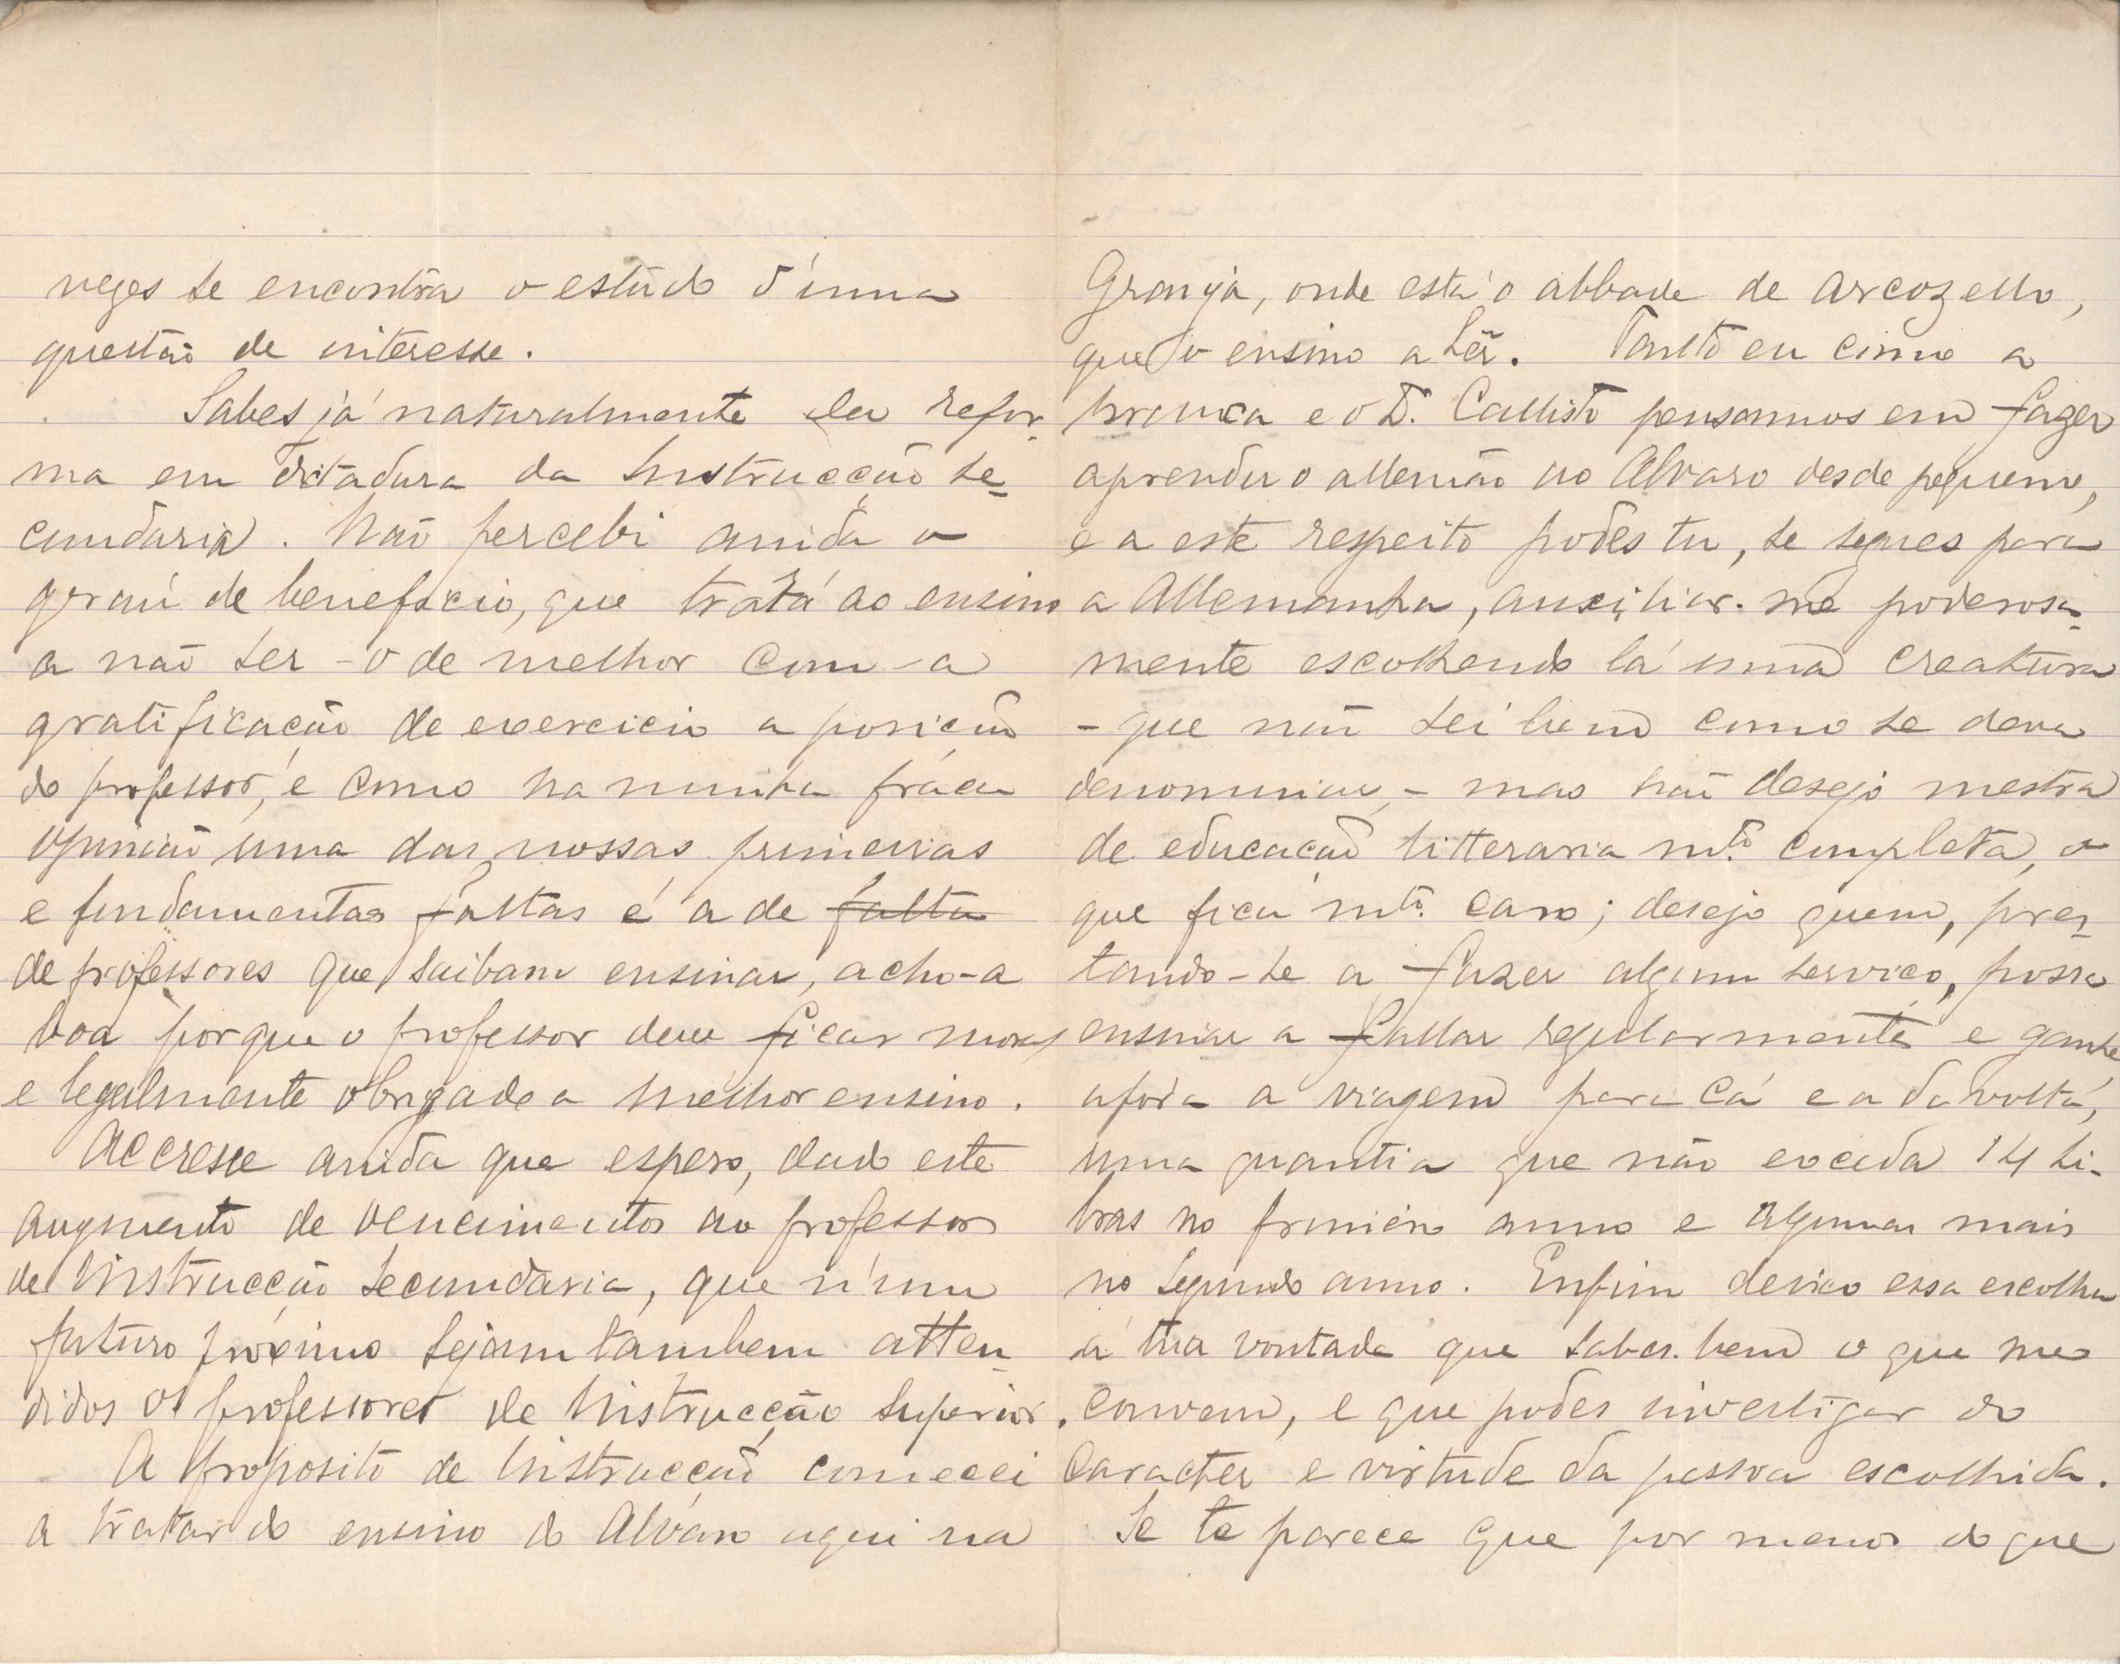 vezes se encontra o estudo d'uma
questão de interesse.
Sabes já naturalmente da refor-
ma em dictadura da Instrucção se-
cundaria. Não percebi ainda o
gerau de beneficio, que trará ao ensino
a não ser-o de melhor com-a
gratificação de exercicio a posição
do professor, e como na minha fráca
opinião uma das nossas primeiras
e fundamentaes faltas é a de falta
de professores que saibam ensinar, acho-a
boa porque o professor deve ficar moral
e legalmente obrigado a melhor ensino.
Accresce ainda que espero, dado este
augmento de vencimentos ao professor
de Instrucção secundaria, que n'um
futuro proximo sejam tambem atten-
didos os professores de Instrucção superior.
A proposito de Instrucção comecei
a tratar do ensino do Alvaro aqui na
Granja, onde está o abbade de Arcozello,
que o ensino a lêr. Tanto eu como a
branca e o D. Callisto pensamos em fazer
aprender o allemão ao Alvaro desde pequeno,
e a este respeito podes tu, se segues para
a Allemanha, auxiliar-me poderosa-
mente escolhendo lá uma creatura
- que não sei bem como se deva
denominar, - mas não desejo mestra
de educação litteraria mto. completa, o
que fica mto. caro; desejo quem, pres-
tando-se a fazer algum serviço, possa
ensinar a fallar regularmente e ganhe
afora a viagem para cá e a da volta,
uma quantia que não exceda 14 li-
bras no primeiro anno e algumas mais
no segundo anno. Enfim deixo essa escolha
á tua vontade que sabes bem o que me
convem, e que podes investigar do
caracter e virtude da pessoa escolhida.
Se te parece que por menos do que